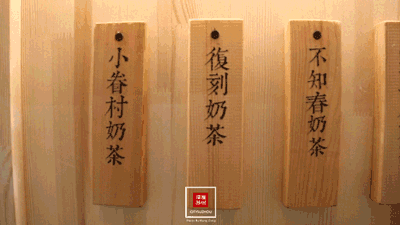 小眷村奶茶
復刻奶茶
不知春奶茶